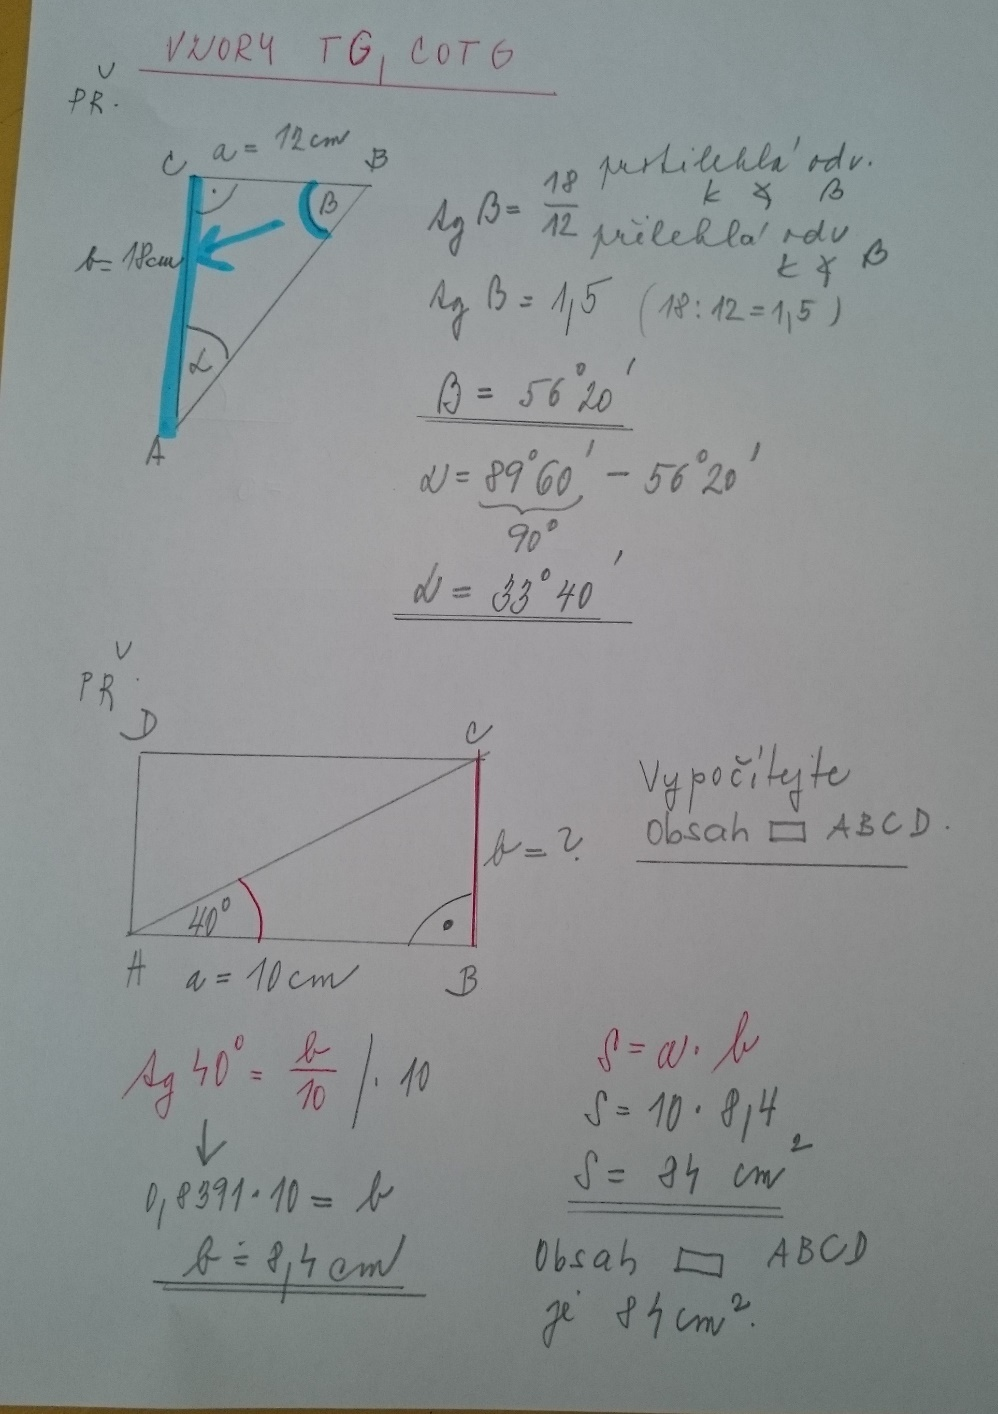 VZORY TG, COTG
PŘ.
C a = 12cm B
b = 18cm
β
α
A
tg β = 18/12 protilehlá odv. k ∢ β
přilehlá odv k ∢ β
tg β = 1,5 (18:12=1,5)
β = 56°20'
α = 89°60' - 56°20'
90°
α = 33°40'
PŘ.
D C
b = ?
40°
A a = 10cm B
Vypočítejte
Obsah ▭ ABCD.
tg 40° = b/10 /· 10
↓
0,8391·10 = b
b ≐ 8,4 cm
S = a · b
S = 10 · 8,4
S = 84 cm²
Obsah ▭ ABCD
je 84cm².